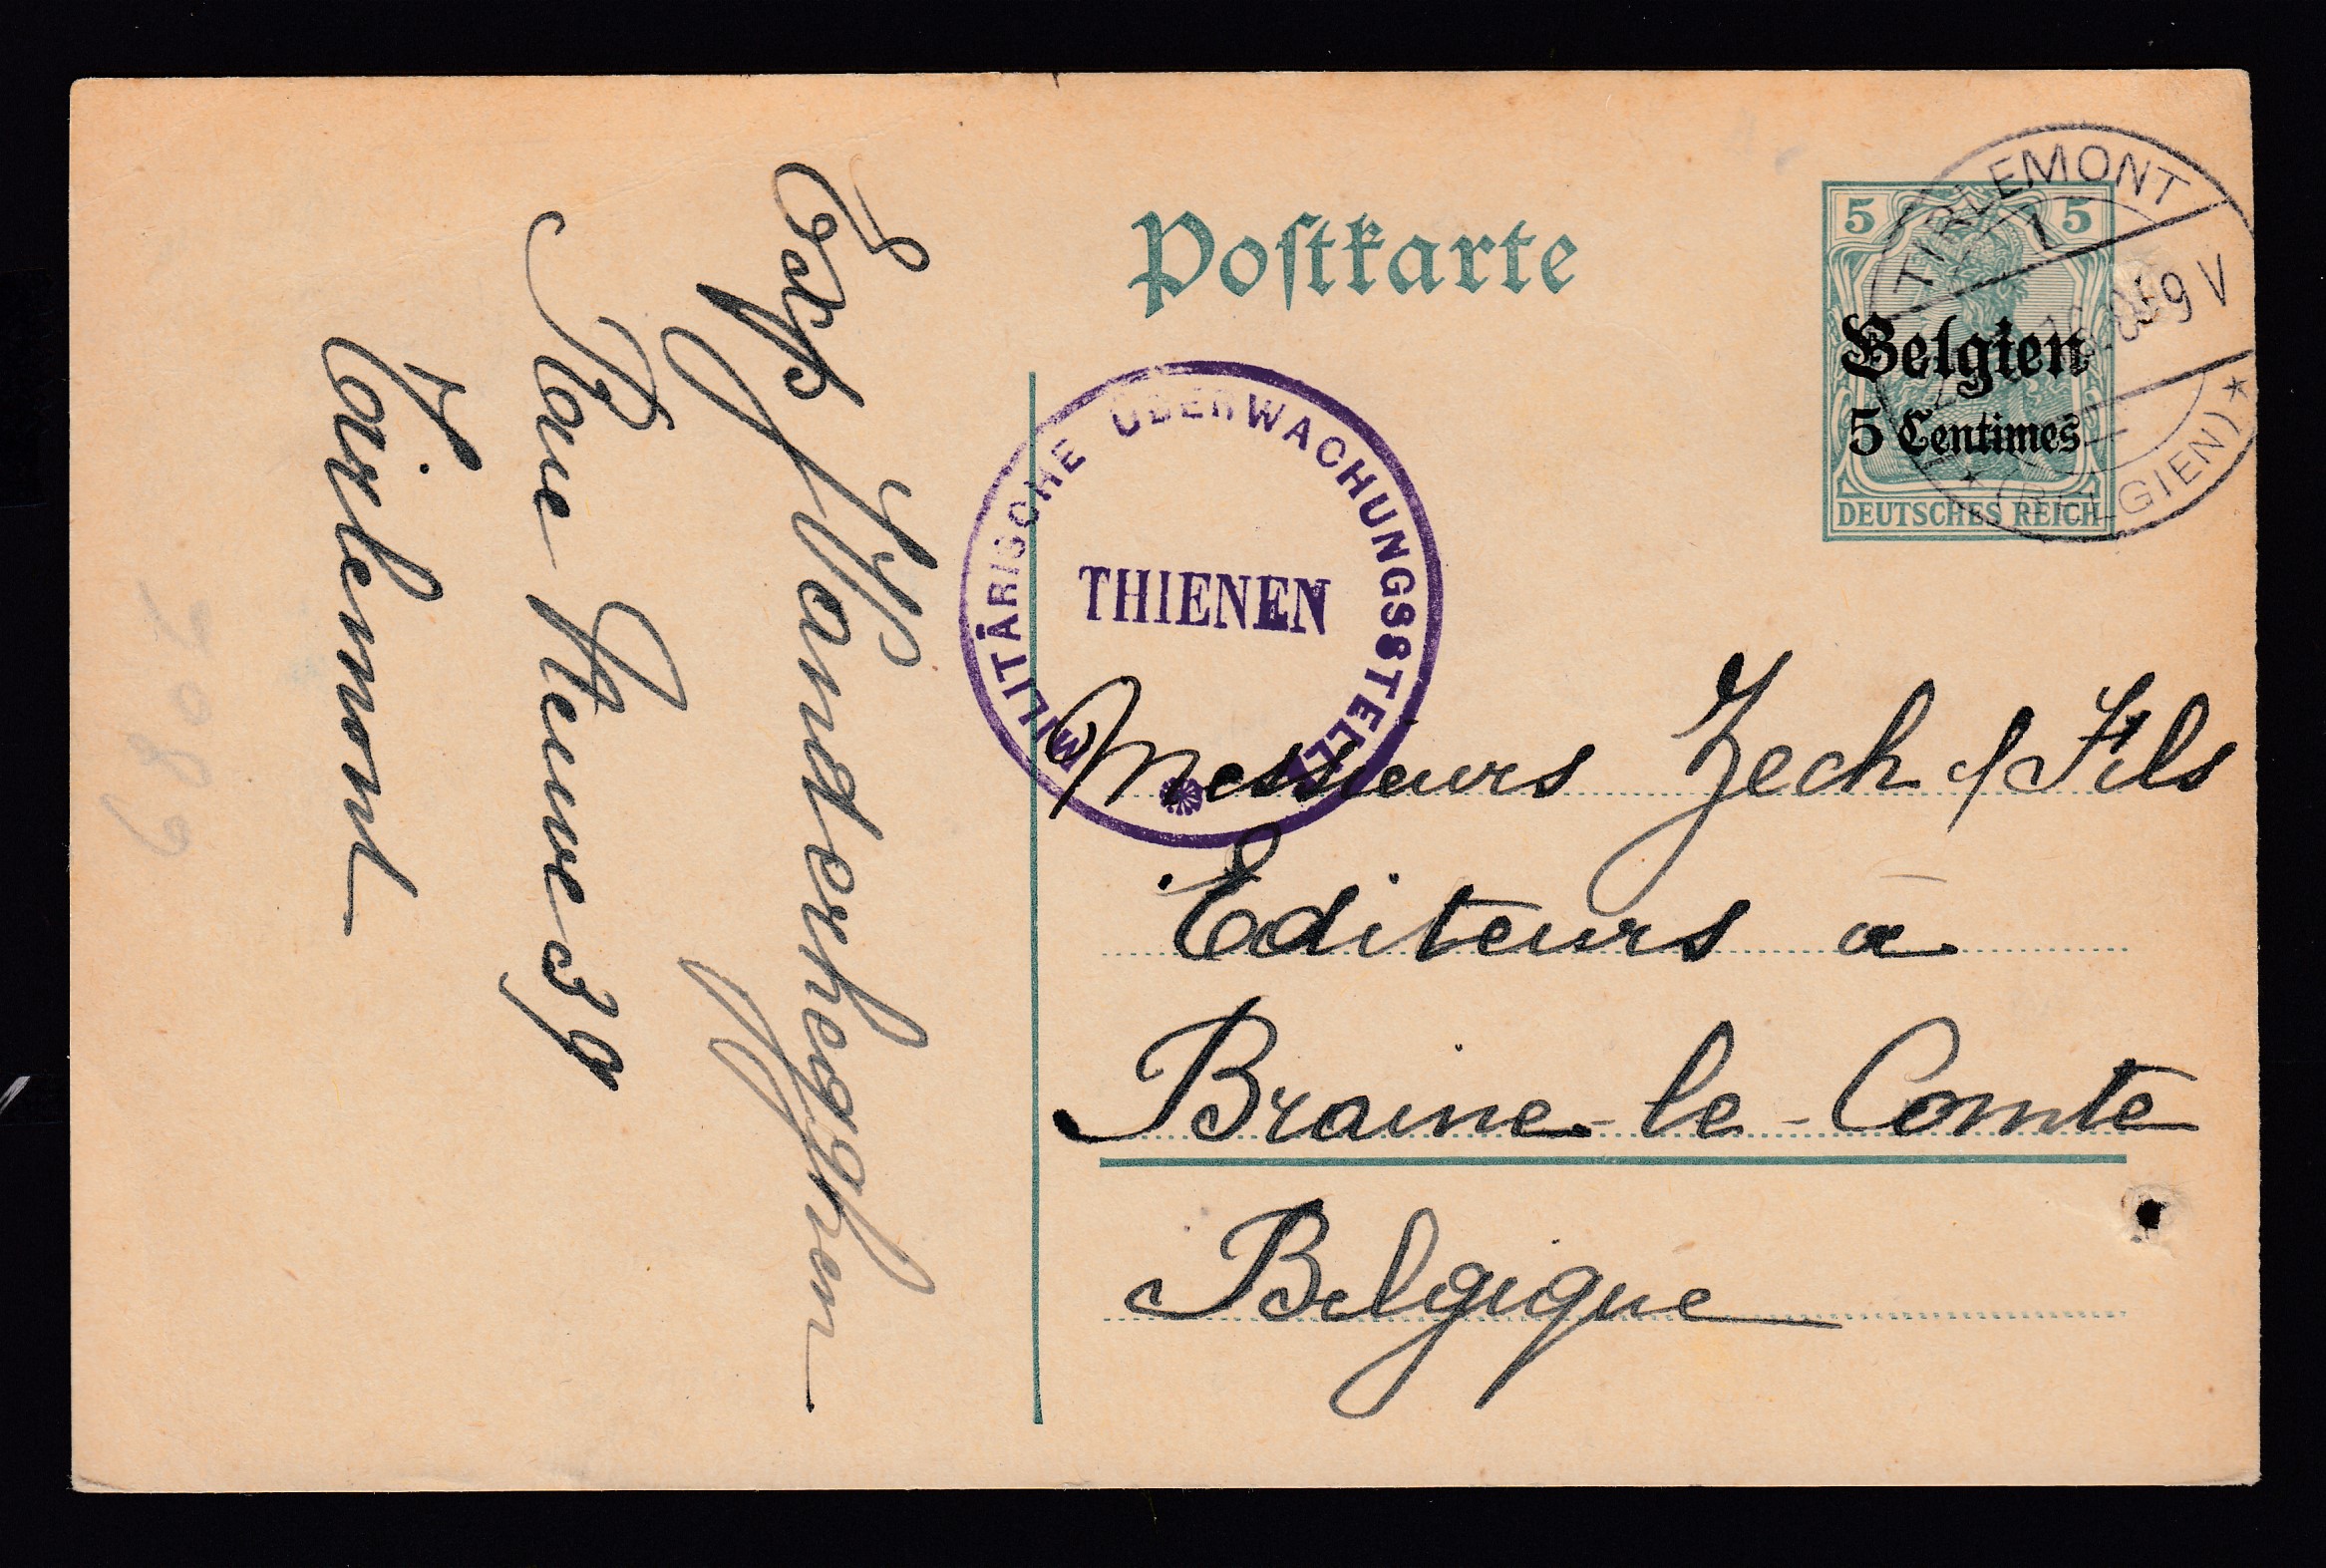 Postkarte
5 5
Belgien
5 Centimes
DEUTSCHES REICH
TIRLEMONT
1
8-9 V
* (BELGIEN) *
MILITÄRISCHE ÜBERWACHUNGSSTELLE
THIENEN
Messieurs Zech & Fils
Editeurs à
Braine-le-Comte
Belgique
Exp Vanderheyghen
Rue Neuve 39
Tirlemont